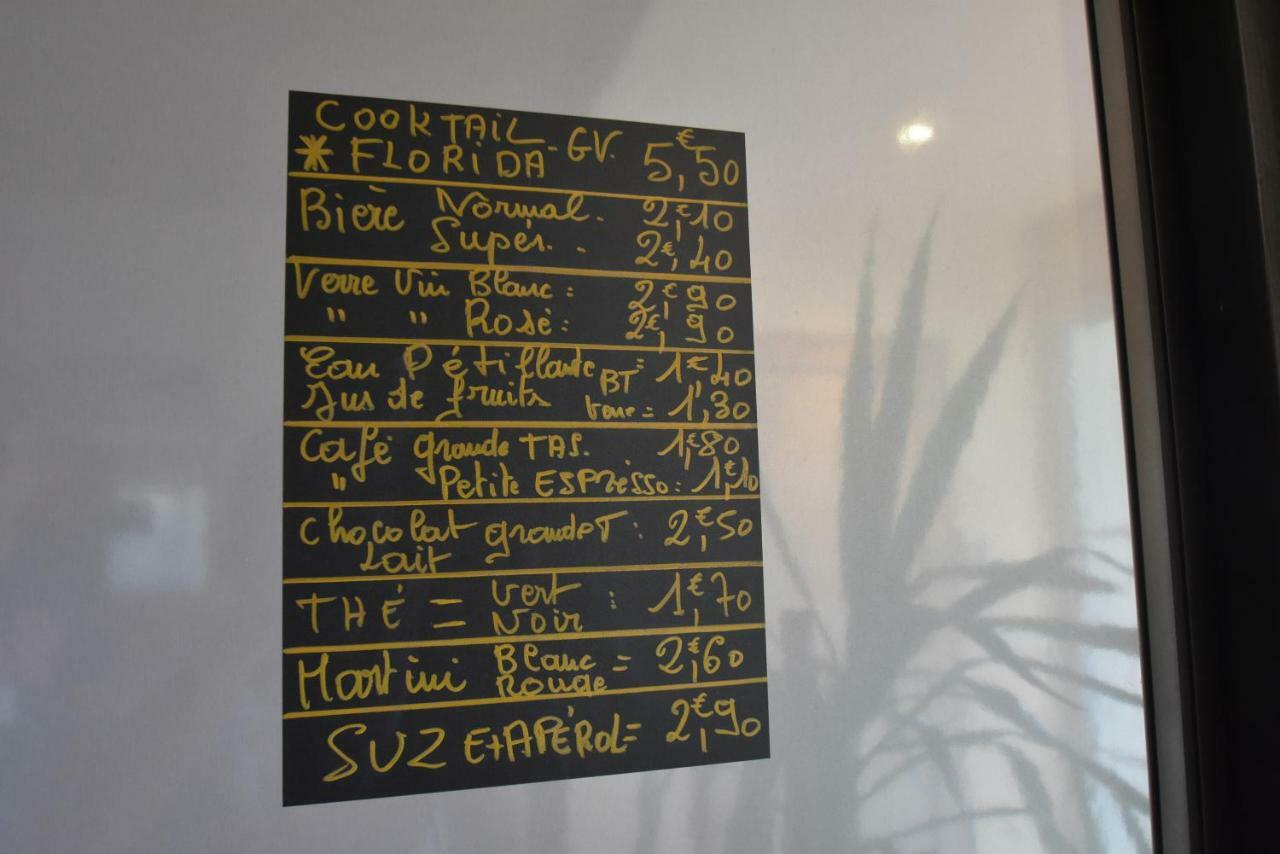 COOKTAIL
* FLORIDA - GV. 5,€50
Bière Normal. 2,€10
Supér. . 2€,40
Verre Vin Blanc : 2,€90
" " Rosé : 2€,90
Eau Pétillante BT = 1€40
Jus de fruits verre = 1',30
Café grande TAS. 1€80
" Petite ESPresso : 1,€10
Chocolat grande T : 2,€50
Lait
THÉ = Vert : 1,€70
Noir
Martini Blanc = 2,€60
Rouge
SUZ Et APÉROL = 2,€90